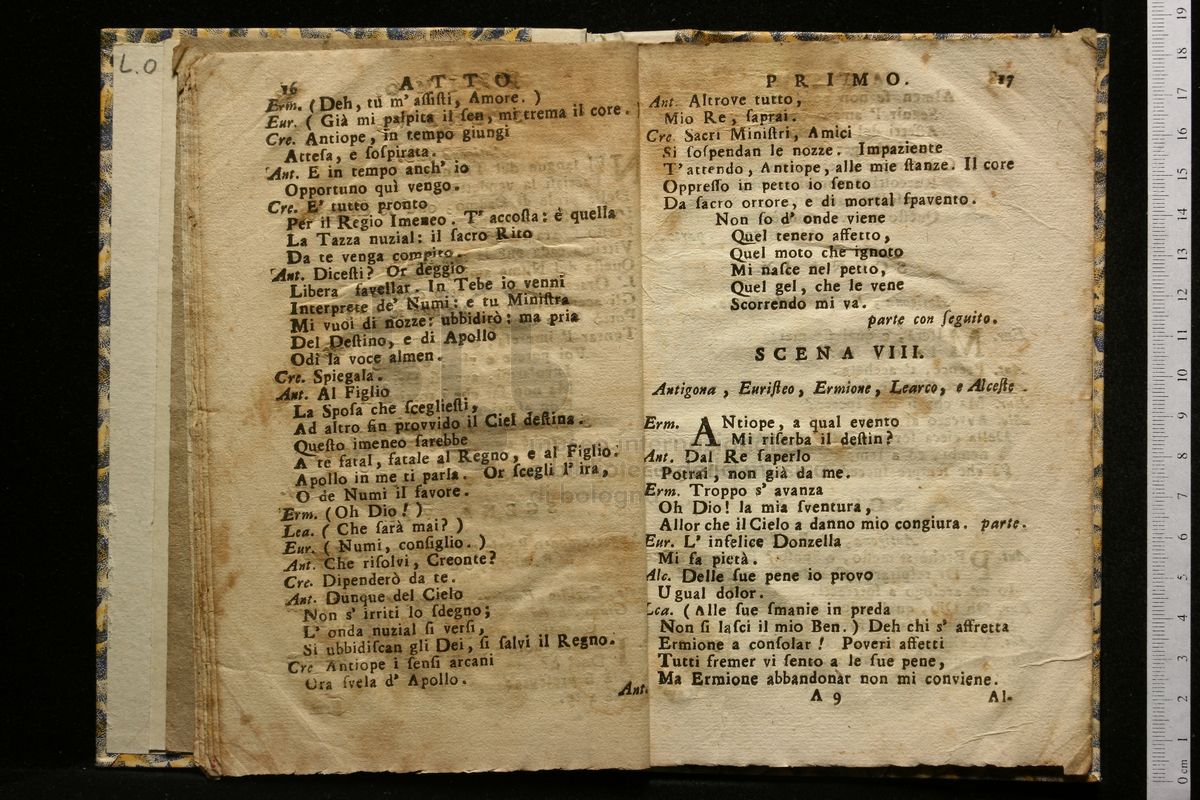 L.O
16 ATTO
Erm. (Deh, tu m' aſſiſti, Amore.)
Eur. (Già mi palpita il ſen, mi trema il core.
Cre. Antiope, in tempo giungi
Atteſa, e ſoſpirata.
Ant. E in tempo anch' io
Opportuno quì vengo.
Cre. E' tutto pronto
Per il Regio Imeneo. T' accoſta: è quella
La Tazza nuzial: il ſacro Rito
Da te venga compito.
Ant. Diceſti? Or deggio
Libera favellar. In Tebe io venni
Interprete de' Numi: e tu Miniſtra
Mi vuoi di nozze: ubbidirò: ma pria
Del Deſtino, e di Apollo
Odi la voce almen.
Cre. Spiegala.
Ant. Al Figlio
La Spoſa che ſceglieſti,
Ad altro fin provvido il Ciel deſtina.
Queſto imeneo ſarebbe
A te fatal, fatale al Regno, e al Figlio.
Apollo in me ti parla. Or ſcegli l' ira,
O de Numi il favore.
Erm. (Oh Dio!)
Lea. (Che ſarà mai?)
Eur. (Numi, conſiglio.)
Ant. Che riſolvi, Creonte?
Cre. Dipenderò da te.
Ant. Dunque del Cielo
Non s' irriti lo ſdegno;
L' onda nuzial ſi verſi,
Si ubbidiſcan gli Dei, ſi ſalvi il Regno.
Cre Antiope i ſenſi arcani
Ora ſvela d' Apollo.
Ant.
PRIMO. 17
Ant. Altrove tutto,
Mio Re, ſaprai.
Cre. Sacri Miniſtri, Amici
Si ſoſpendan le nozze. Impaziente
T' attendo, Antiope, alle mie ſtanze. Il core
Oppreſſo in petto io ſento
Da ſacro orrore, e di mortal ſpavento.
Non ſo d' onde viene
Quel tenero affetto,
Quel moto che ignoto
Mi naſce nel petto,
Quel gel, che le vene
Scorrendo mi va.
parte con ſeguito.
SCENA VIII.
Antigona, Euriſteo, Ermione, Learco, e Alceſte.
Erm. ANtiope, a qual evento
Mi riſerba il deſtin?
Ant. Dal Re ſaperlo
Potrai, non già da me.
Erm. Troppo s' avanza
Oh Dio! la mia ſventura,
Allor che il Cielo a danno mio congiura. parte.
Eur. L' infelice Donzella
Mi fa pietà.
Alc. Delle ſue pene io provo
Ugual dolor.
Lea. (Alle ſue ſmanie in preda
Non ſi laſci il mio Ben.) Deh chi s' affretta
Ermione a conſolar! Poveri affetti
Tutti fremer vi ſento a le ſue pene,
Ma Ermione abbandonar non mi conviene.
A 9 Al-